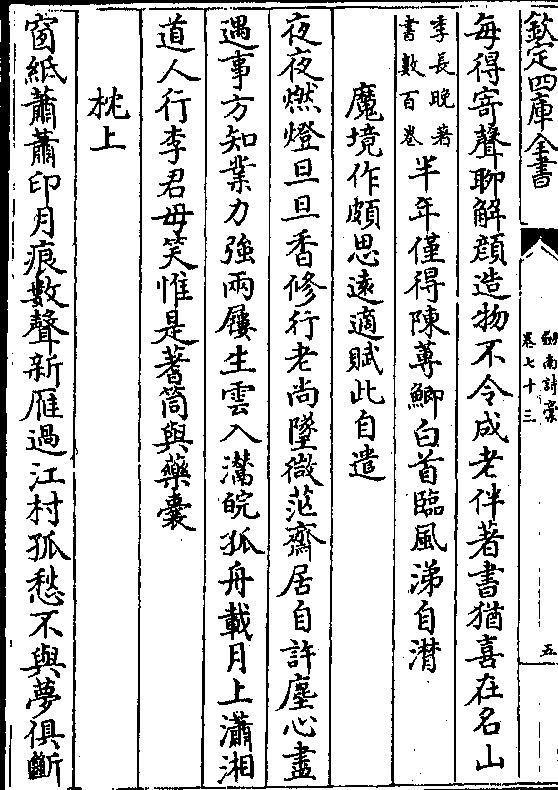 欽定四庫全書
劍南詩稾
卷七十三
五
每得寄聲聊解顔造物不令成老伴著書猶喜在名山
李長晚著
書數百卷
半年僅得陳蓴鯽白首臨風涕自潸
魔境作頗思遠適賦此自遣
夜夜燃燈旦旦香修行老尚墜微茫齋居自許塵心盡
遇事方知業力強兩屨生雲入灊皖孤舟載月上瀟湘
道人行李君毋笑惟是蓍筒與藥囊
枕上
窗紙蕭蕭印月痕數聲新雁過江村孤愁不與夢俱斷